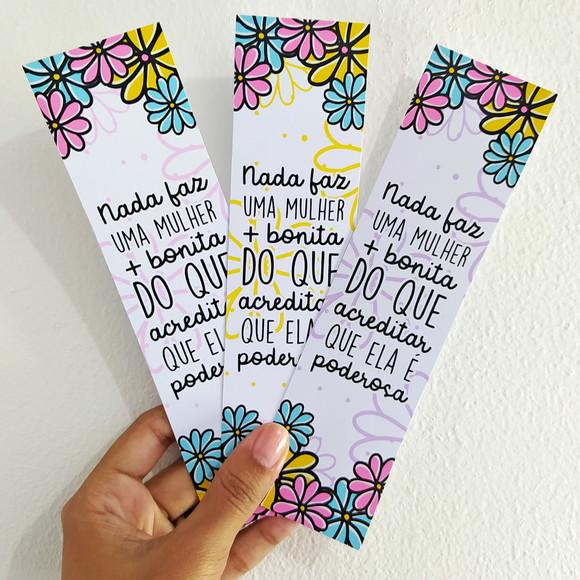 Nada faz
UMA MULHER
+ bonita
DO QUE
acredita
QUE EL
poder
Nada faz
UMA MULHER
+ bonita
DO QUE
acredita
QUE ELA
poder
Nada faz
UMA MULHER
+ bonita
DO QUE
acreditar
QUE ELA É
poderosa